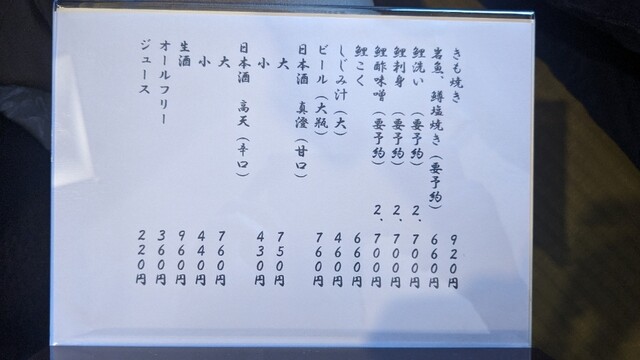 きも焼き 920円
岩魚、鱒塩焼き（要予約） 660円
鯉洗い（要予約） 2.700円
鯉刺身（要予約） 2.700円
鯉酢味噌（要予約） 2.700円
鯉こく 660円
しじみ汁（大） 460円
ビール（大瓶） 760円
日本酒 真澄（甘口）
大 750円
小 430円
日本酒 高天（辛口）
大 760円
小 440円
生酒 960円
オールフリー 360円
ジュース 220円